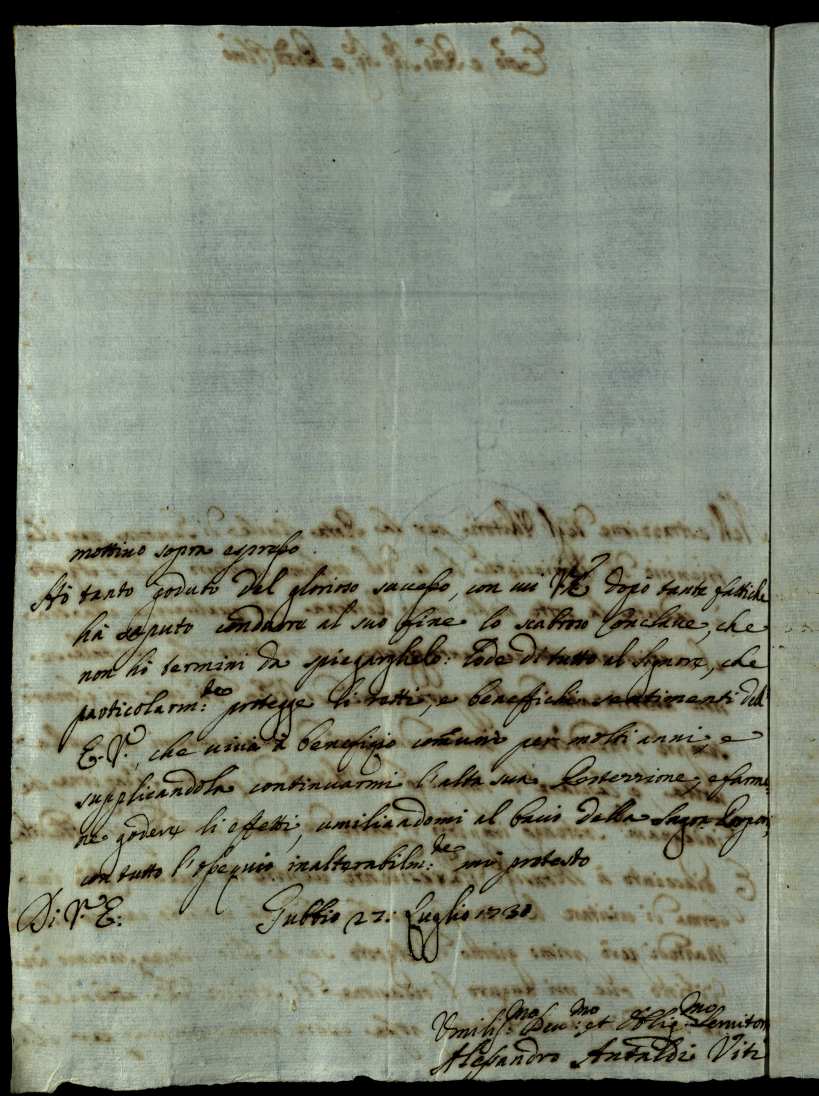 mottivo sopra espresso.
Hò tanto goduto del glorioso successo, con cui V.E. dopò tante fattiche
hà saputo condurre al suo fine lo scabroso Conclave, che
non hò termini da spiegarglielo: Lode di tutto al Signore, che
particolarm:te protegge li retti, e beneffichi sentimenti dell'
E.V., che viva à beneficio comune per molti anni, e
supplicandola continuarmi l'alta sua Protezzione, e farme
ne godere li effetti, umiliandomi al bacio della Sagra Porpora,
con tutto l'ossequio inalterabilm:te mi protesto
Di V.E: Gubbio 27: Luglio 1730
Umiliss:mo Dev:mo et Oblig:mo Servitore
Alessandro Antaldi Viti